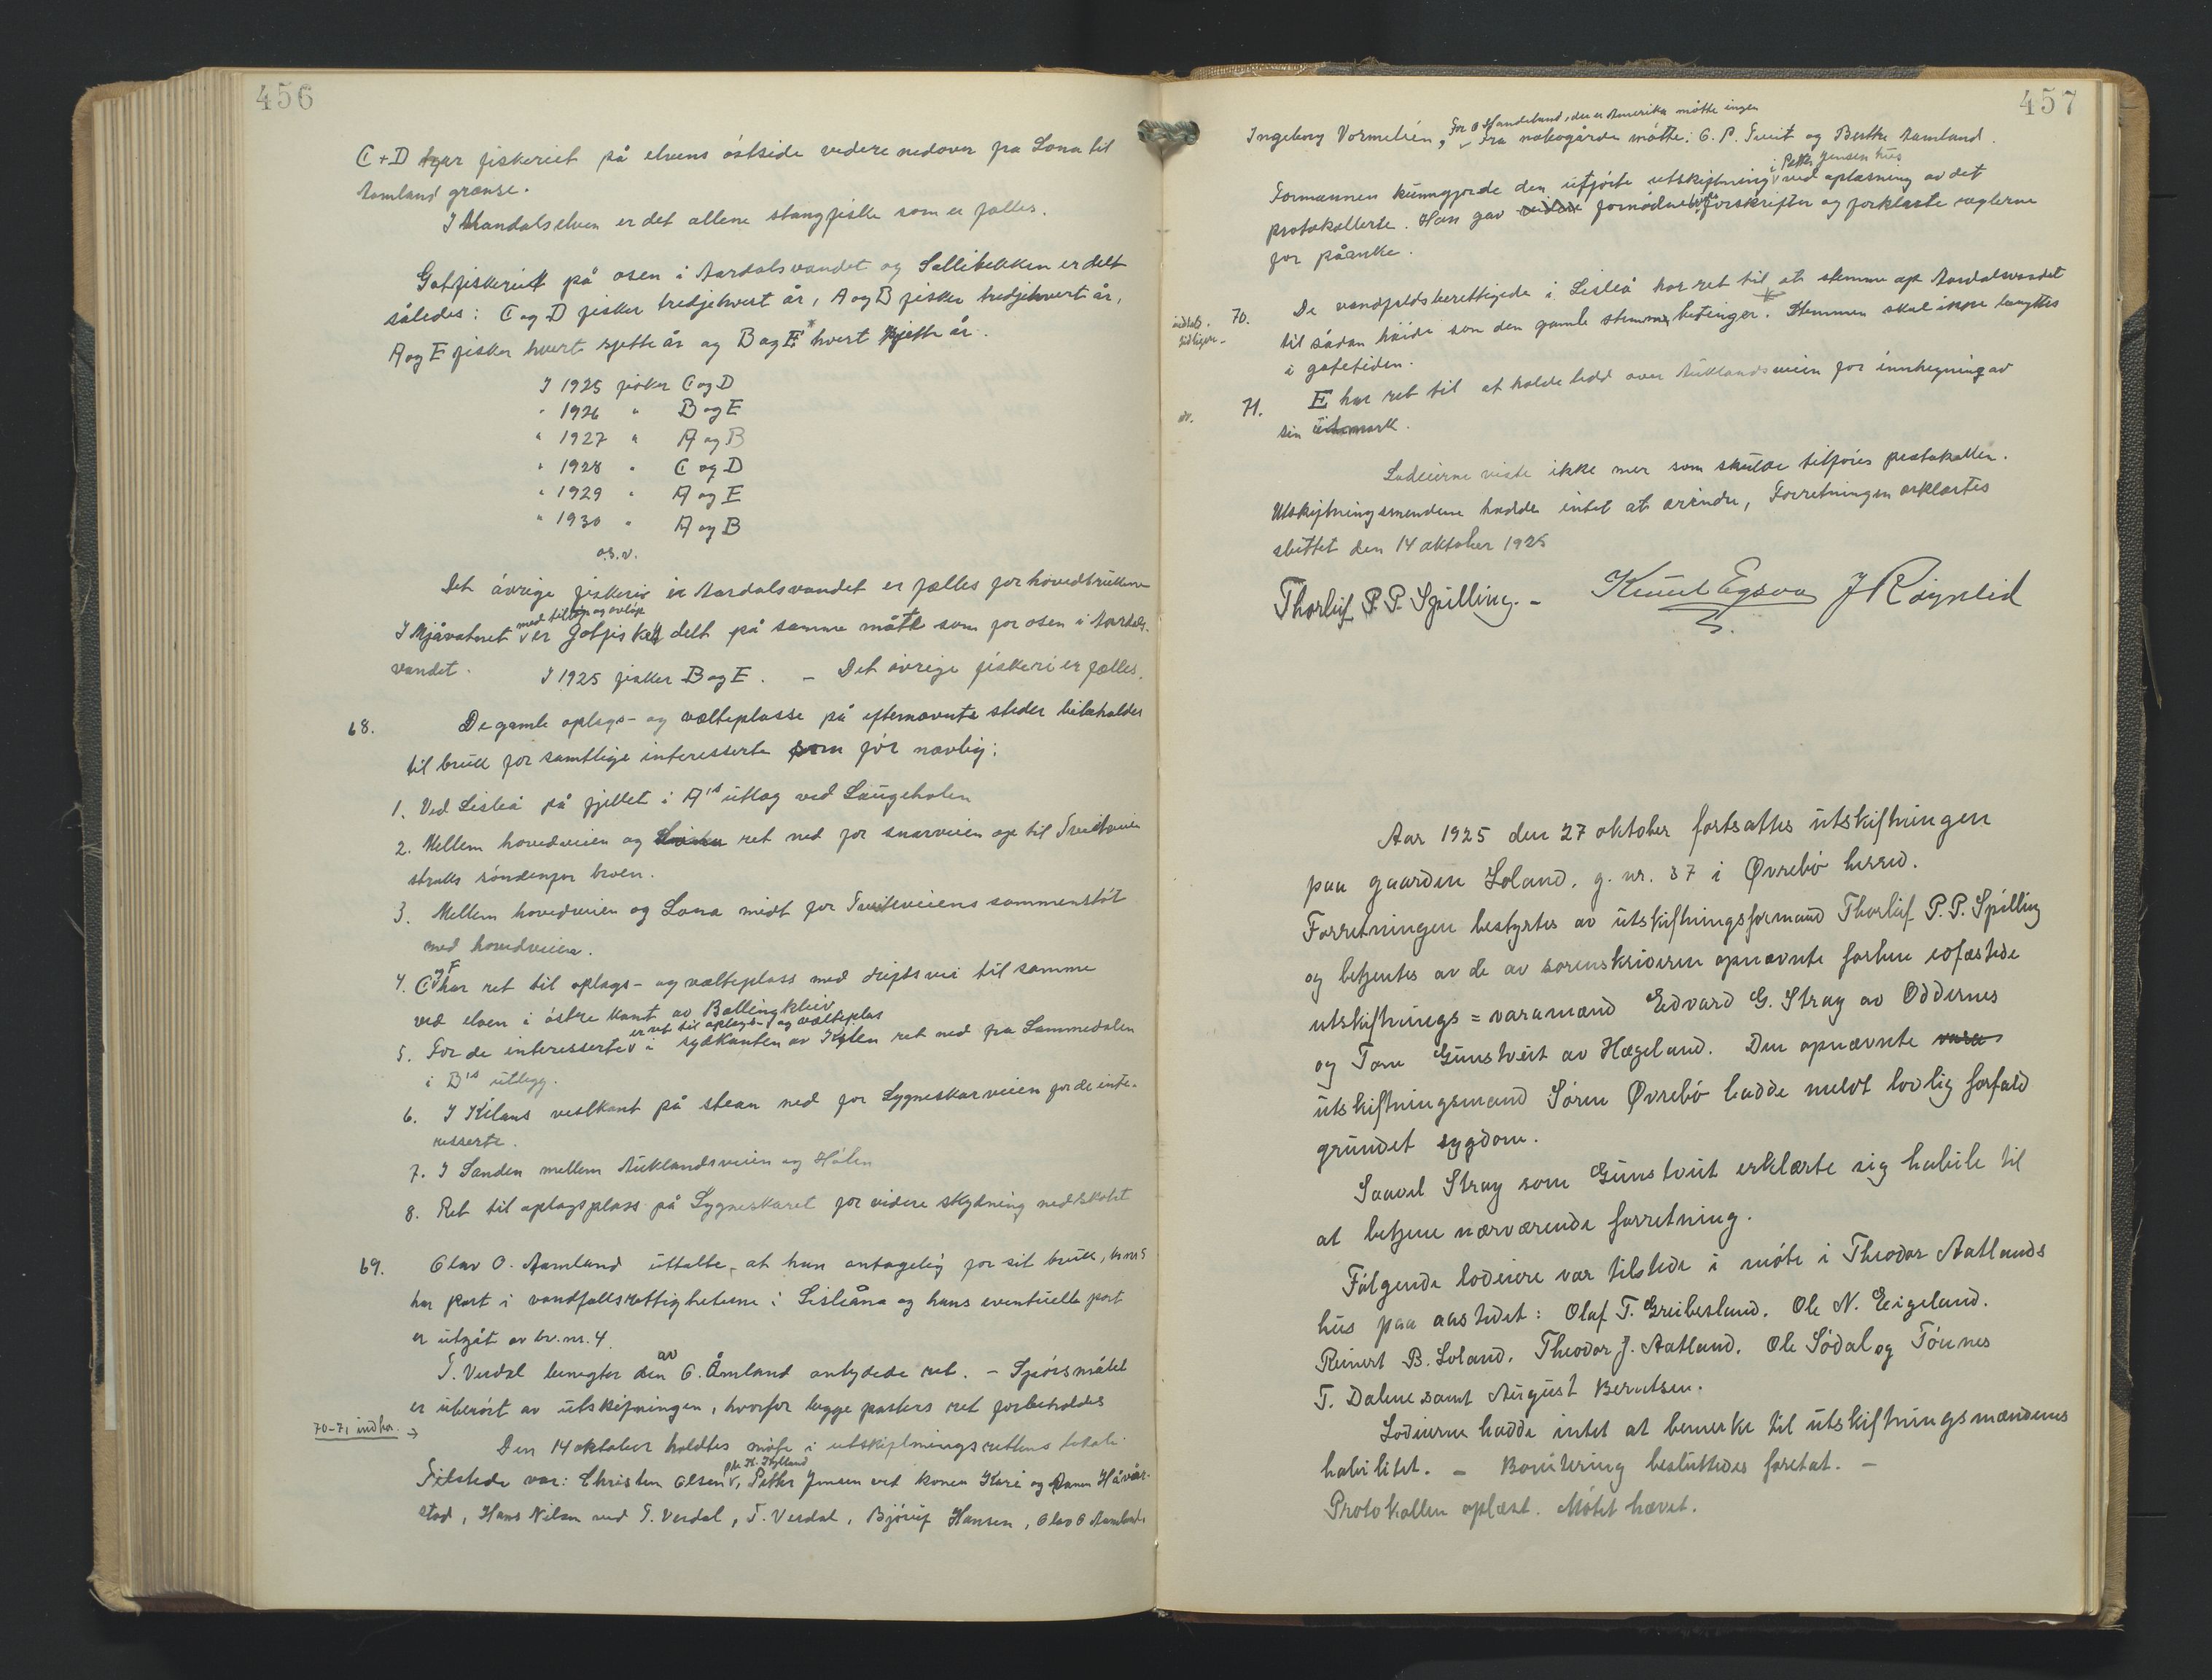 456
C + D har fiskeriet på elvens østside videre nedover fra Lona til
Aamland grænse.
I Mandalselven er det allene stangfiske som er fælles.
Gotfiskeriet på osen i Aardalsvandet og Sellibekken er delt
således: C og D fisker tredjehvert år, A og B fisker tredjehvert år,
A og E fisker hvert sjette år og B og E hvert sjette år.
I 1925 fisker C og D
" 1926 " B og E
" 1927 " A og B
" 1928 " C og D
" 1929 " A og E
" 1930 " A og B
o.s.v.
Det øvrige fiskeri i Aardalsvandet er fælles for hovedbrukene
med tilløp og avløp
I Mjåvatnet er gotfisket delt på samme måte som for osen i Aardals-
vandet. I 1925 fisker B og E. - Det øvrige fiskeri er fælles.
68. De gamle oplags- og vælteplasse på efternævnte steder bibeholdes
til bruk for samtlige interesserte som før navlig:
1. Ved Lisleå på fjellet i A's utlæg ved Laugeholen
2. Mellem hovedveien og ret ned for snarveien op til Tveitveien
straks søndenfor broen.
3. Mellem hovedveien og Lona midt for Tveitveiens sammenstøt
med hovedveien.
og F
4. C har ret til oplags- og vælteplass med driftsvei til samme
ved elven i østre kant av Ballingkleiv
er ret til oplags- og vælteplas
5. For de interesserte i sydkanten av Kilen ret ned fra Lammedalen
i B's utlegg.
6. I Kilens vestkant på stean ned for Lygneskarveien for de inte-
resserte.
7. I Sanden mellem Auklandsveien og Hølen
8. Ret til oplagsplass på Lygneskaret for videre skydning nedskåret
69. Olav O. Aamland uttalte, at han antagelig for sit bruk, br.nr 5
har part i vandfallsrettigheterne i Lisleåna og hans eventuelle part
er utgåt av br. nr. 4.
av
T. Verdal benegter den O. Åmland antydede ret. - Spørsmålet
er uberørt av utskiftningen, hvorfor begge parters ret forbeholdes
70-71 indføres →
Den 14 oktober holdtes møte i utskiftningsrettens lokale.
Tilstede var: Christen Olsen, Petter Jensen ved konen Kari og Håvår-
stad, Hans Nilsen ved T. Verdal, T. Verdal, Bjørulf Hansen, Olav O Aamland,
457
der er Amerika møtte ingen
Ingeborg Vormelien, - Fra nabogårde møtte: O. P. Tveit og Berthe Aamland.
i Petter Jensen hus
Formannen kunngjorde den utførte utskiftning ved oplæsning av det
protokollerte. Han gav fornødne forskrifter og forklarte reglerne
for påanke.
70. De vandfaldsberettigede i Lisleå har ret til at stemme op Aardalsvandet
til sådan høide som den gamle stemme betinger. Stemmen skal ikke benyttes
i gotetiden.
71. E har ret til at holde ledd over Auklandsveien for innhegning av
sin utmark.
Lodeierne viste ikke mer som skulde tilføres protokollen.
Utskiftningsmendene hadde intet at erindre, Forretningen erklærtes
sluttet den 14 oktober 1925
Thorleif P. P. Spilling. - Knut Egsvoa J Røynlid
Aar 1925 den 27 oktober fortsattes utskiftningen
paa gaarden Loland. g. nr. 37 i Øvrebø herred.
Forretningen bestyrtes av utskiftningsformand Thorleif P. P. Spilling
og betjentes av de av sorenskriveren opnævnte forhen edfæstede
utskiftnings = varamænd Edvard G. Stray av Oddernes
og Tom Gunstveit av Hægeland. Den opnævnte vara
utskiftningsmand Søren Øvrebø hadde meldt lovlig forfald
grundet sygdom.
Saavel Stray som Gunstveit erklærte sig habile til
at betjene nærværende forretning.
Følgende lodeiere var tilstede i møte i Theodor Aatlands
hus paa aastedet: Olaf T. Greibesland. Ole N. Eigeland.
Reinert B. Loland. Theodor J. Aatland. Ole Sødal og Tønnes
T. Dalene samt August Berntsen.
Lodeierne hadde intet at bemerke til utskiftningsmændenes
habilitet. - Bonitering besluttedes foretat. -
Protokollen oplæst. Møtet hævet.